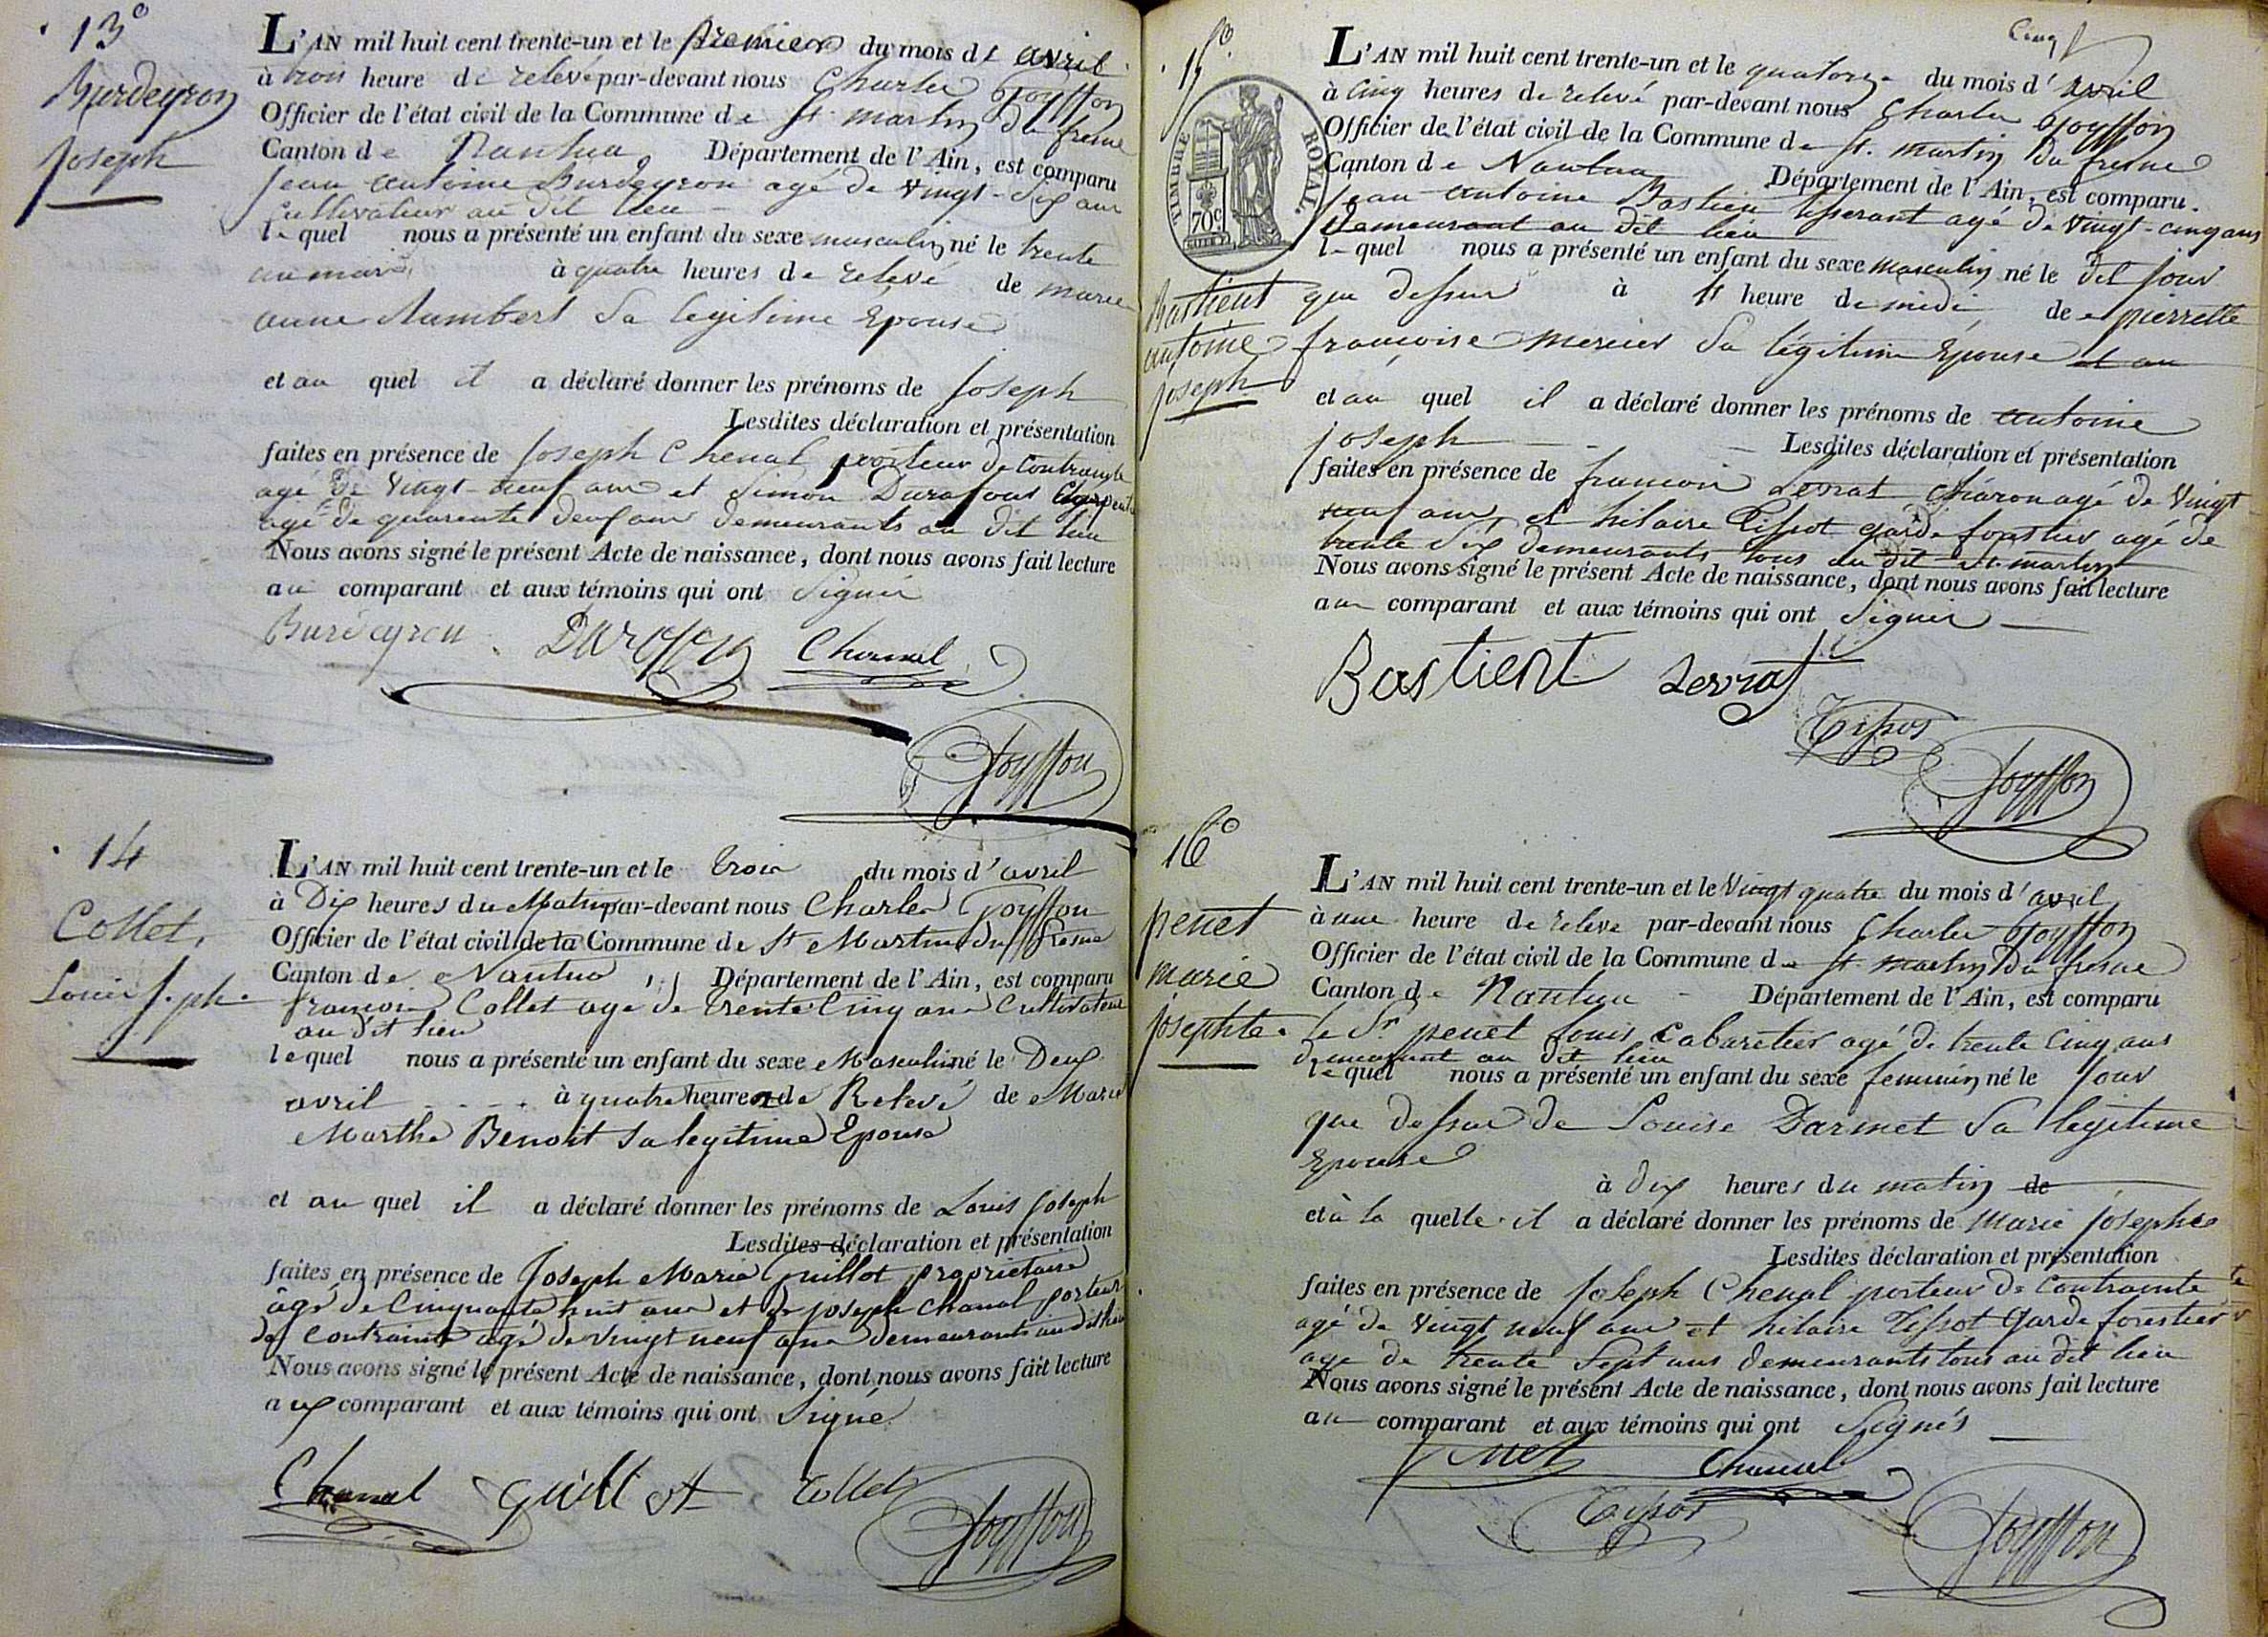 13°
Burdeyron
Joseph
L'AN mil huit cent trente-un et le premier du mois d'avril
à trois heure de relevé par-devant nous Charles Goyffon
Officier de l'état civil de la Commune de St. martin du fresne
Canton de Nantua Département de l'Ain, est comparu
jean antoine Burdeyron agé de vingt-six ans
cultivateur au dit lieu
lequel nous a présenté un enfant du sexe masculin né le trente
un mars à quatre heures de relevé de marie
anne humbert sa légitime Epouse
et au quel il a déclaré donner les prénoms de Joseph
Lesdites déclaration et présentation
faites en présence de Joseph Chenal porteur de contrainte
agé de vingt-neuf ans et Simon
agé de quarente deux ans demeurants au dit lieu
Nous avons signé le présent Acte de naissance, dont nous avons fait lecture
au comparant et aux témoins qui ont signés
Burdeyron Chanal
Goyffon
14
Collet,
Louis Jph.
L'AN mil huit cent trente-un et le trois du mois d'avril
à Dix heures du Matin par-devant nous Charles Goyffon
Officier de l'état civil de la Commune de St Martin du fresne
Canton de Nantua, Département de l'Ain, est comparu
françois Collet agé de trente cinq ans Cultivateur
au dit lieu
lequel nous a présenté un enfant du sexe Masculin né le Deux
avril à quatre heures de Relevé de Marie
Marthe Benoit sa legitime Epouse
et au quel il a déclaré donner les prénoms de Louis Joseph
Lesdites déclaration et présentation
faites en présence de Joseph Marie guillot propriétaire
âgé de cinquante huit ans et de joseph Chanal porteur
de contrainte agé de vingt neuf ans demeurants au dit lieu
Nous avons signé le présent Acte de naissance, dont nous avons fait lecture
aux comparant et aux témoins qui ont signé
Chanal guillot Collet
Goyffon
Cinq
15°
TIMBRE ROYAL.
70c.
Bastient
antoine
joseph
L'AN mil huit cent trente-un et le quatorze du mois d'avril
à cinq heures de relevé par-devant nous Charles Goyffon
Officier de l'état civil de la Commune de St. martin du fresne
Canton de Nantua Département de l'Ain, est comparu.
jean antoine Bastien tisserant agé de vingt-cinq ans
demeurant au dit lieu
lequel nous a présenté un enfant du sexe masculin né le dit jour
que dessus à heure de midi de pierrette
françoise mercier sa légitime Epouse et au
et au quel il a déclaré donner les prénoms de antoine
joseph Lesdites déclaration et présentation
faites en présence de francois Serrat charon agé de vingt
neuf ans et hilaire Tissot garde forestier agé de
trente six demeurants tous au dit St. martin
Nous avons signé le présent Acte de naissance, dont nous avons fait lecture
au comparant et aux témoins qui ont signés
Bastient Serrat
Tissot
Goyffon
16°
penet
marie
josephte.
L'AN mil huit cent trente-un et le vingt quatre du mois d'avril
à une heure de relevé par-devant nous Charles Goyffon
Officier de l'état civil de la Commune de St. martin du fresne
Canton de Nantua Département de l'Ain, est comparu
le Sr. penet louis Cabaretier agé de trente cinq ans
demeurant au dit lieu
lequel nous a présenté un enfant du sexe feminin né le jour
que dessus de Louise Darmet sa legitime
Epouse
à dix heures du matin de
et à la quelle il a déclaré donner les prénoms de Marie josephte
Lesdites déclaration et présentation
faites en présence de Joseph Chenal porteur de contrainte
agé de vingt neuf ans et hilaire Tissot Garde forestier
agé de trente sept ans demeurants tous au dit lieu
Nous avons signé le présent Acte de naissance, dont nous avons fait lecture
au comparant et aux témoins qui ont signés
penet Chanal
Tissot
Goyffon